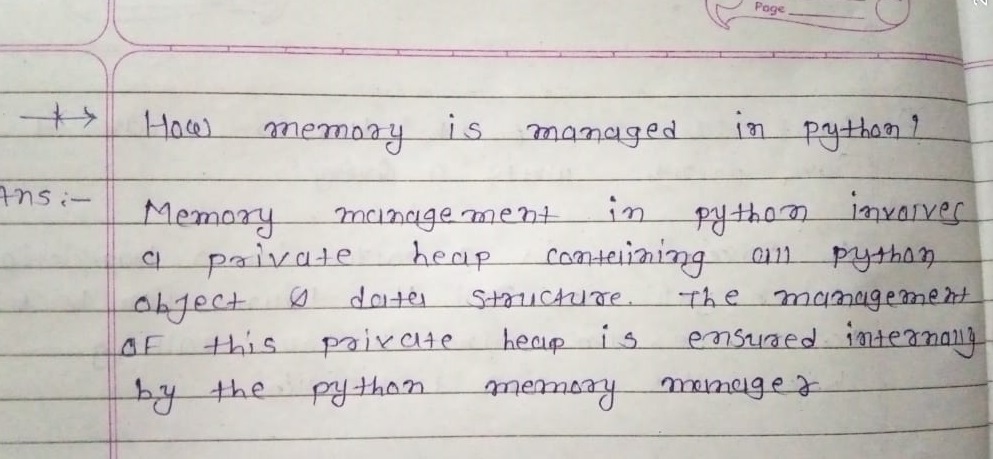 Page
How memory is managed in python?
Ans :- Memory management in python involves
a private heap containing all python
object & data structure. The management
OF this private heap is ensured internally
by the python memory manager